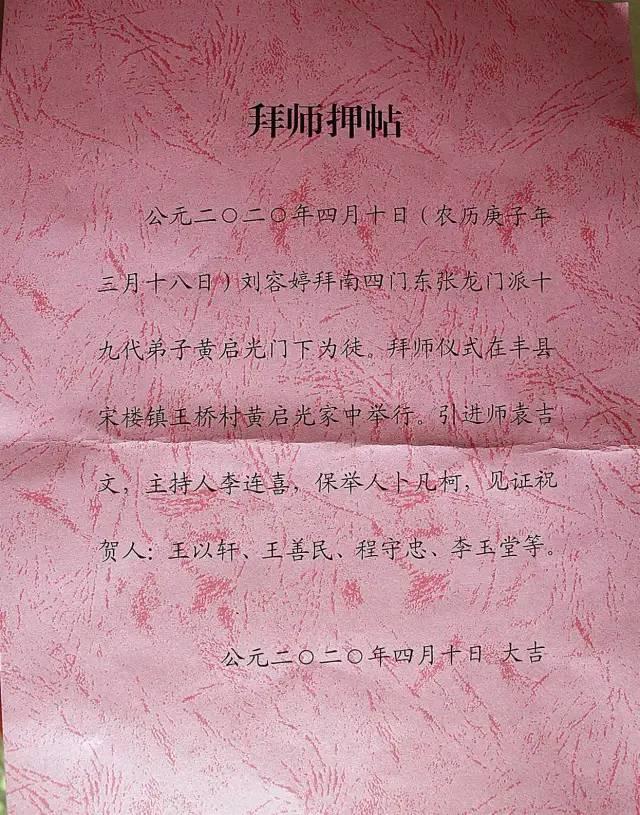 拜师押帖
公元二〇二〇年四月十日（农历庚子年
三月十八日）刘容婷拜南四门东张龙门派十
九代弟子黄启光门下为徒。拜师仪式在丰县
宋楼镇王桥村黄启光家中举行。引进师袁吉
文，主持人李连喜，保举人卜凡柯，见证祝
贺人：王以轩、王善民、程守忠、李玉堂等。
公元二〇二〇年四月十日 大吉